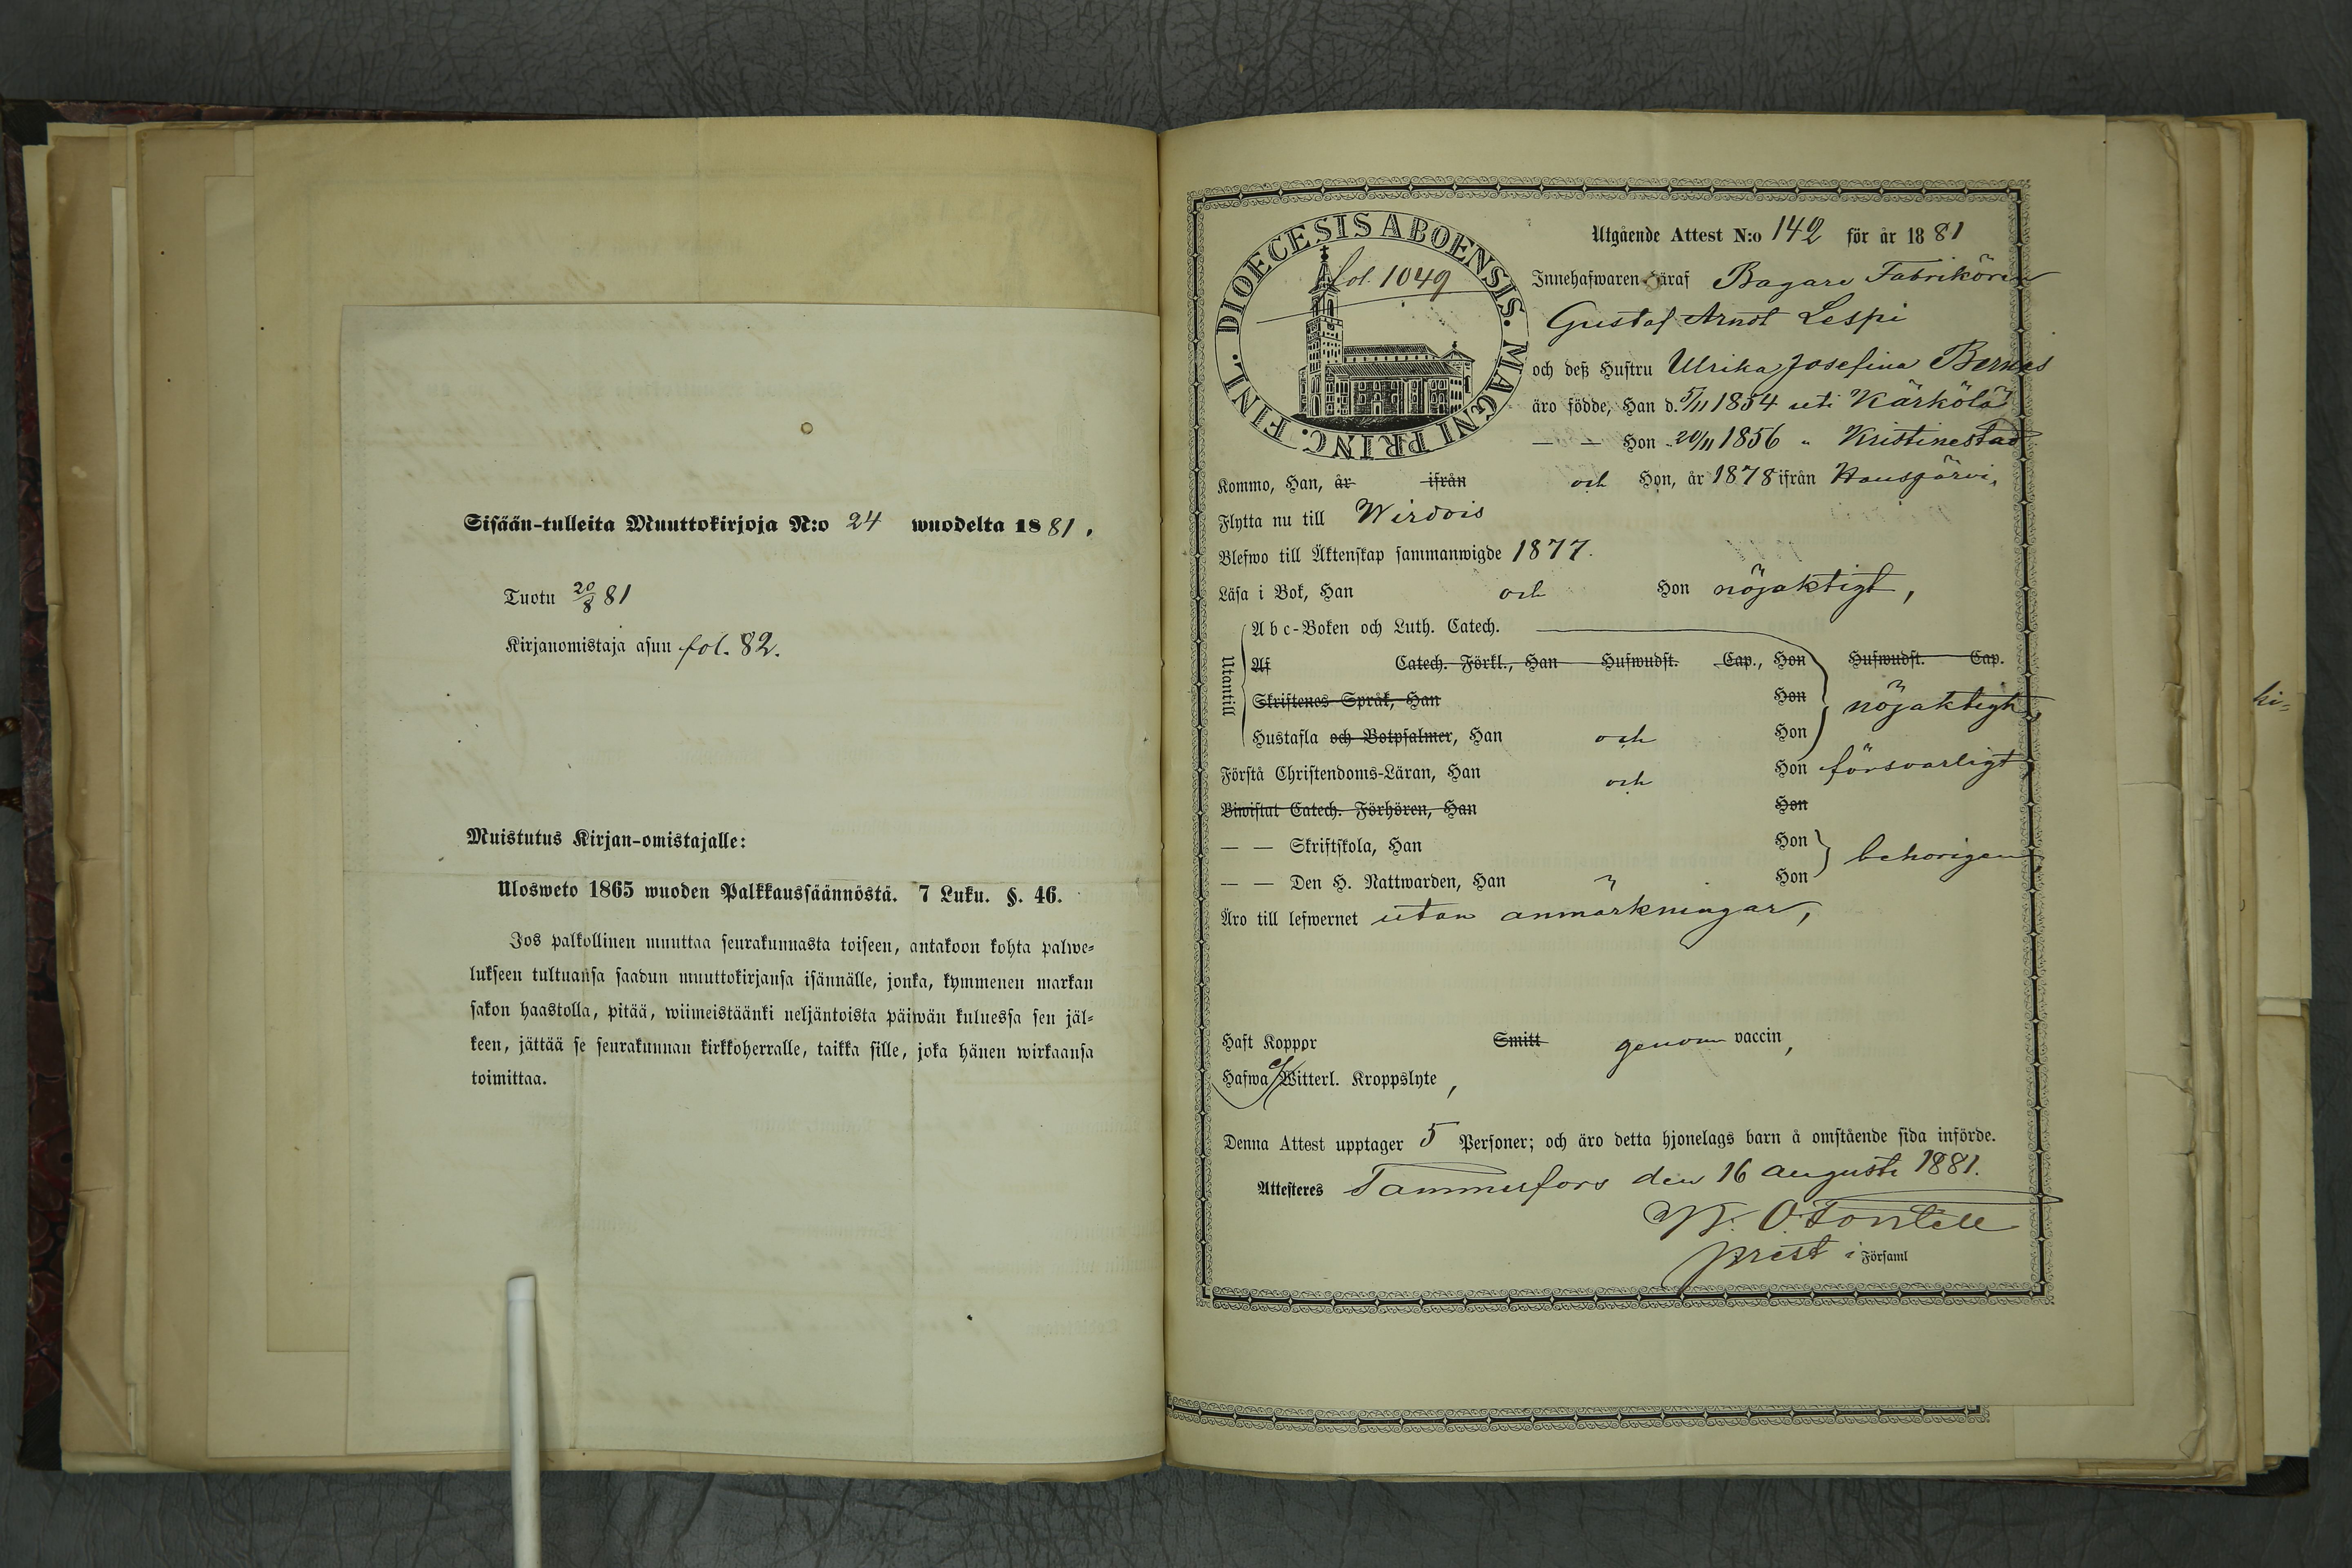 Sisään-tulleita Muuttokirjoja N:o 24 wuodelta 1881.
Tuotu 20/8 81
Kirjanomistaja asuu fol. 82.
Muistutus Kirjan-omistajalle:
Ulosweto 1865 wuoden Palkkaussäännöstä. 7 Luku. §. 46.
Jos palkollinen muuttaa seurakunnasta toiseen, antakoon kohta palwe-
lukseen tultuansa saadun muuttokirjansa isännälle, jonka, kymmenen markan
sakon haastolla, pitää, wiimeistäänki neljäntoista päiwän kuluessa sen jäl-
keen, jättää se seurakunnan kirkkoherralle, taikka sille, joka hänen wirkaansa
toimittaa.
DIOECESIS ABOENSIS. MAGNI PRINC. FINL.
fol. 1049
Utgående Attest N:o 142 för år 1881
Innehafwaren häraf Bagare Fabrikören
Gustaf Arndt Lespi
och deß Hustru Ulrika Josefina Bernes
äro födde, Han d. 5/11 1854 uti Kärkölä
— — Hon " 20/11 1856 " Kristinestad
Kommo, Han, år ifrån och Hon, år 1878 ifrån Hausjärvi,
Flytta nu till Wirdois
Blefwo till Äktenskap sammanwigde 1877.
Läsa i Bok, Han och Hon nöjaktigt,
Utantill
Abc-Boken och Luth. Catech.
Af Catech. Förkl., Han Hufwudst. Cap., Hon Hufwudst. Cap.
Skriftenes Språk, Han Hon nöjaktigt,
Hustafla och Botpsalmer, Han och Hon
Förstå Christendoms-Läran, Han och Hon försvarligt,
Biwistat Catech. Förhören, Han Hon
— — Skriftskola, Han Hon
behörigen
— — Den H. Nattwarden, Han " Hon
Äro till lefwernet utan anmärkningar,
Haft Koppor Smitt genom vaccin,
Hafwa ej Witterl. Kroppslyte,
Denna Attest upptager 5 Personer; och äro detta hjonelags barn å omstående sida införde.
Attesteres Tammerfors den 16 augusti 1881.
K. O. Fontell
prest i Församl
ki-